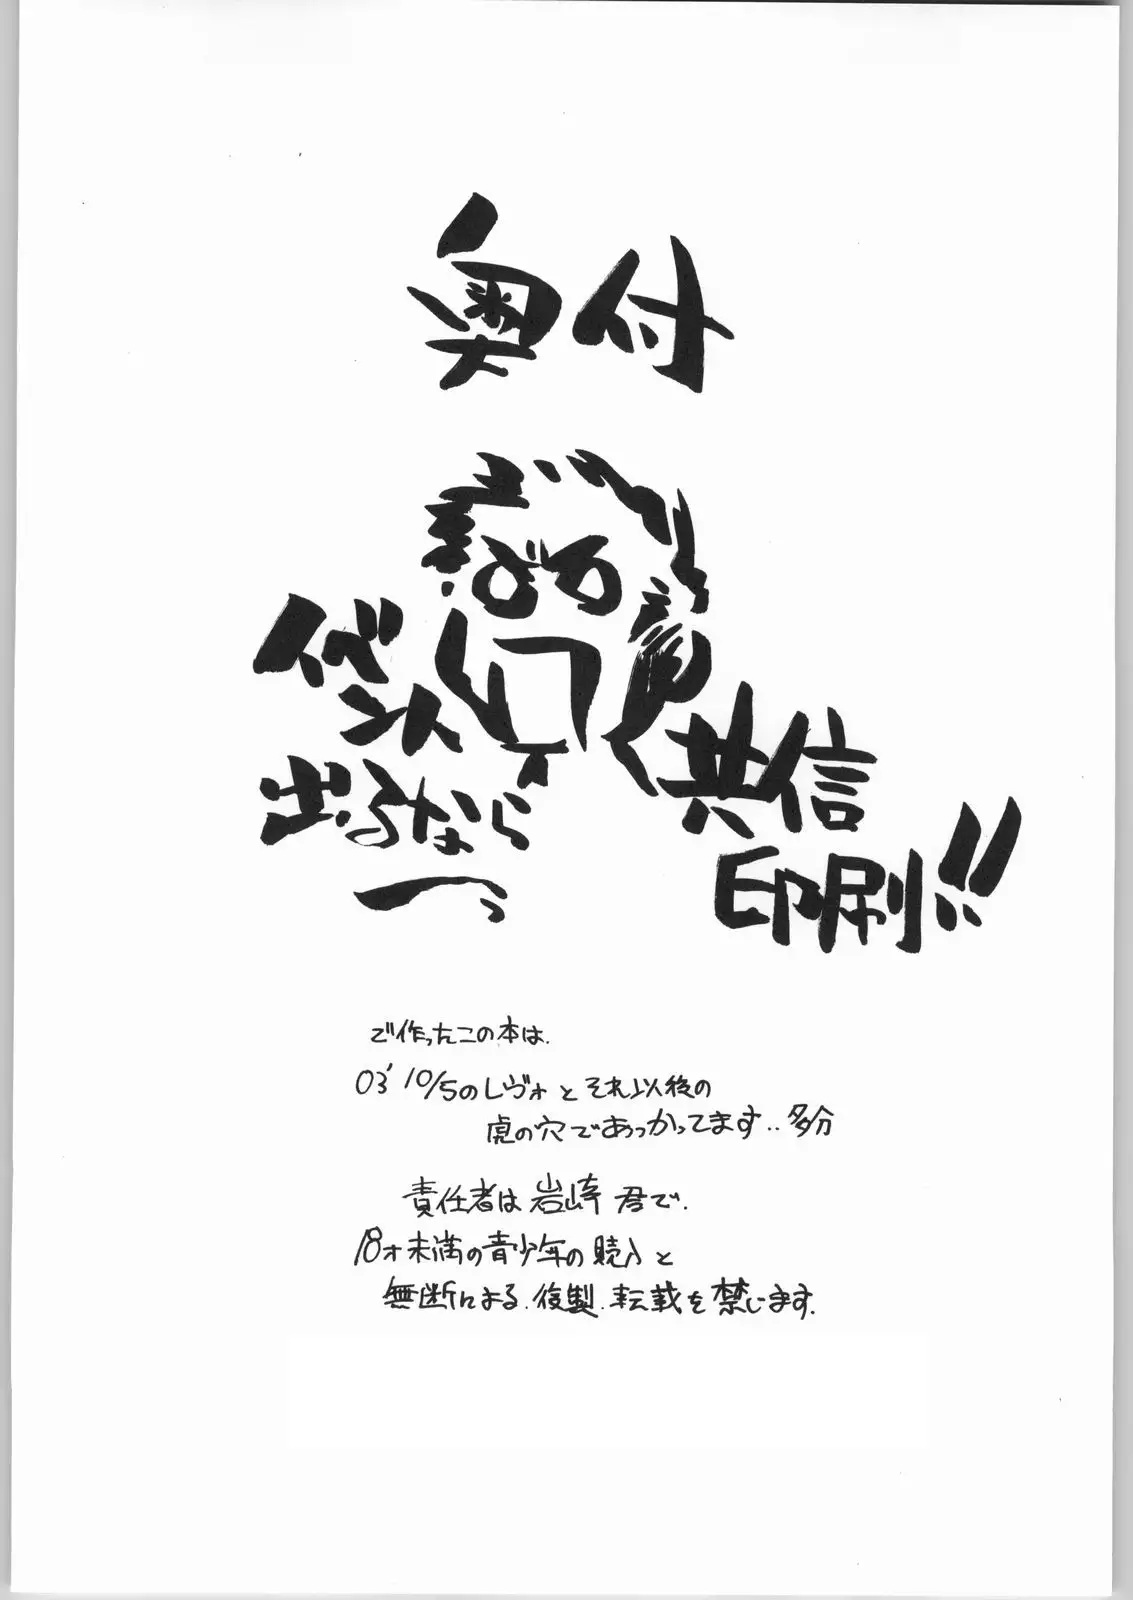 奥付
イベント
出るなら
一っ
共信
印刷!!
で作ったこの本は.
03' 10/5のレヴォとそれ以後の
虎の穴であつかってます..多分
責任者は岩崎君で.
18才未満の青少年の購入と
無断による.複製.転載を禁じます.